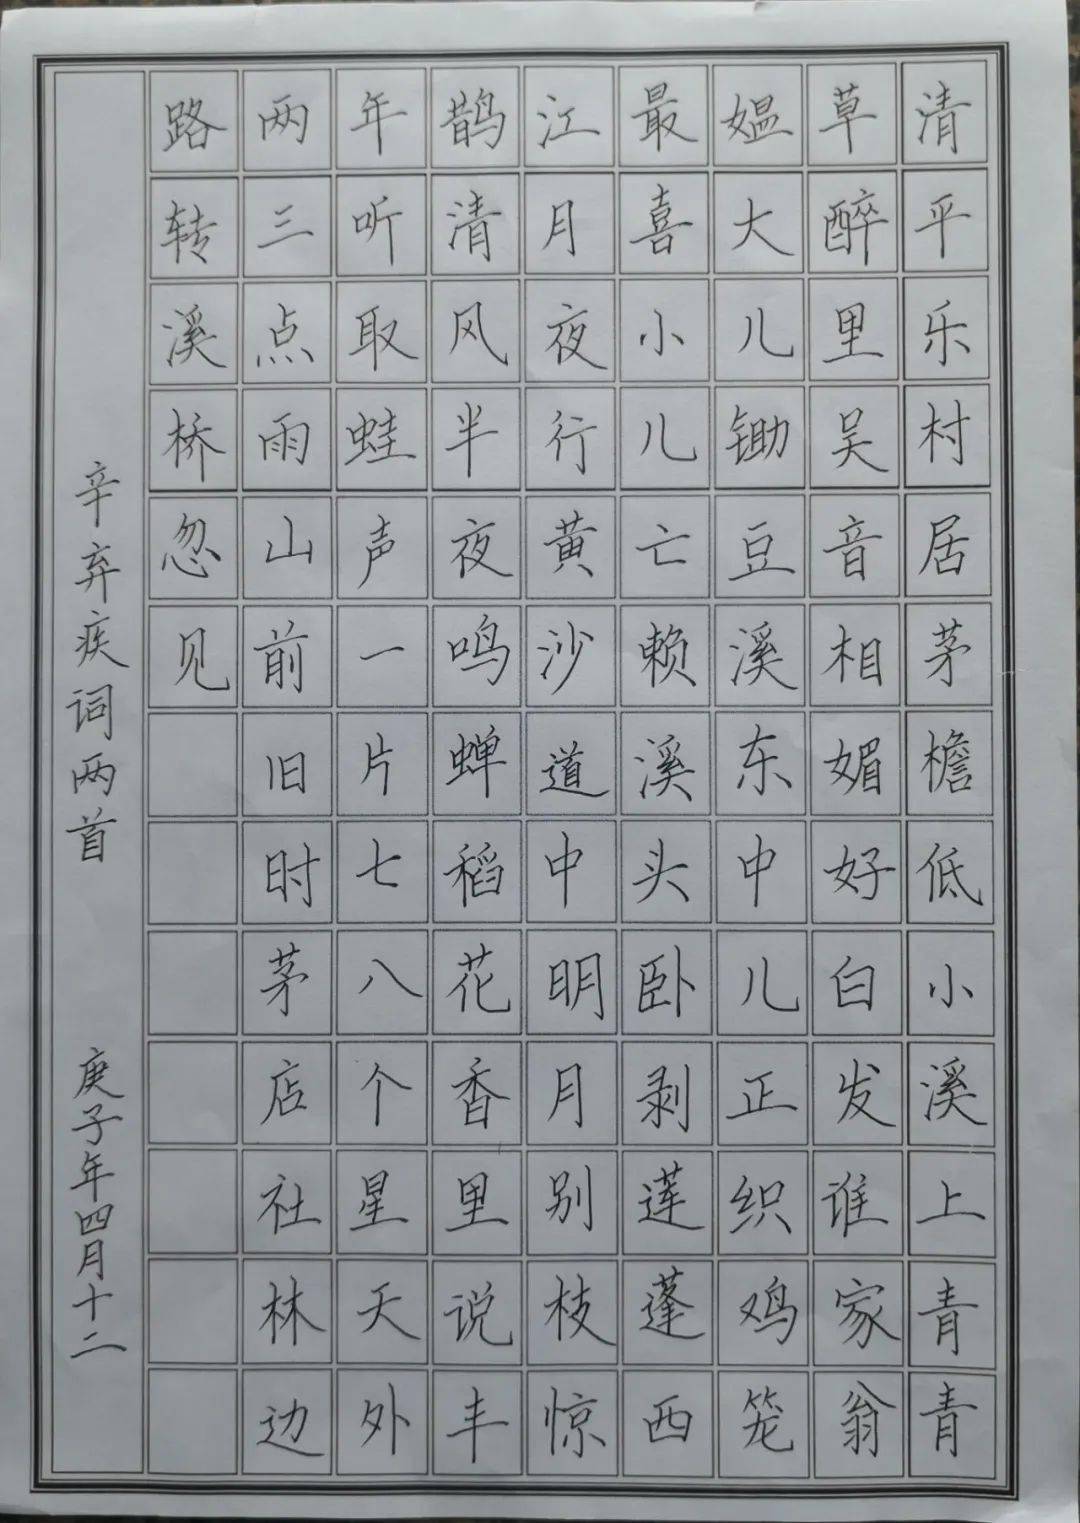 清平乐村居茅檐低小溪上青青
草醉里吴音相媚好白发谁家翁
媪大儿锄豆溪东中儿正织鸡笼
最喜小儿亡赖溪头卧剥莲蓬西
江月夜行黄沙道中明月别枝惊
鹊清风半夜鸣蝉稻花香里说丰
年听取蛙声一片七八个星天外
两三点雨山前旧时茅店社林边
路转溪桥忽见
辛弃疾词两首 庚子年四月十二